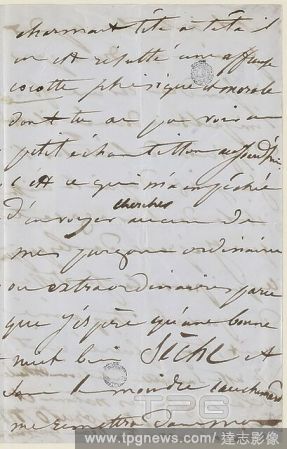 charmant tête à tête il
en est résulté une affreuse
cocotte phisique et morale
dont tu as pu voir un
petit échantillon aujourd'hui
c'est ce qui m'a empêchée
cherches
d'envoyer aucun de
mes garçons ordinaires
ou extraordinaires parce
que j'espère qu'une bonne
nuit bien SÈCHE et
sans le moindre cauchemard
me remettra dans mon
TPG
www.tpgnews.com/ 達志影像